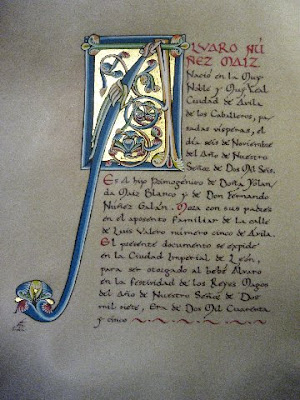 ALVARO NÚ
ÑEZ MAIZ
Nació en la Muy
Noble y Muy Leal
Ciudad de Ávila
de los Caballeros, pa
sadas vísperas, el
día seis de Noviembre
del Año de Nuestro
Señor de Dos Mil Seis.
Es el hijo Primogénico de Doña Yolan
da Maiz Blanco y de Don Fernando
Núñez Galán. Mora con sus padres
en el aposento familiar de la calle
de Luis Valero número cinco de Ávila.
El presente documento se expide
en la Ciudad Imperial de León,
para ser otorgado al bebé Álvaro
en la festividad de los Reyes Magos
del Año de Nuestro Señor de Dos
mil siete, Era de Dos Mil Cuarenta
y cinco